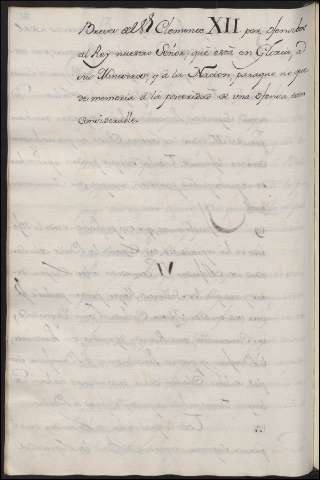 Breves del Clemente XII por ofensibos
al Rey nuestro Señor, que está en Gloria, à
sus Ministros, y à la Nacion, paraque no que
de memoria á la posteridad de una ofensa tan
considerable.